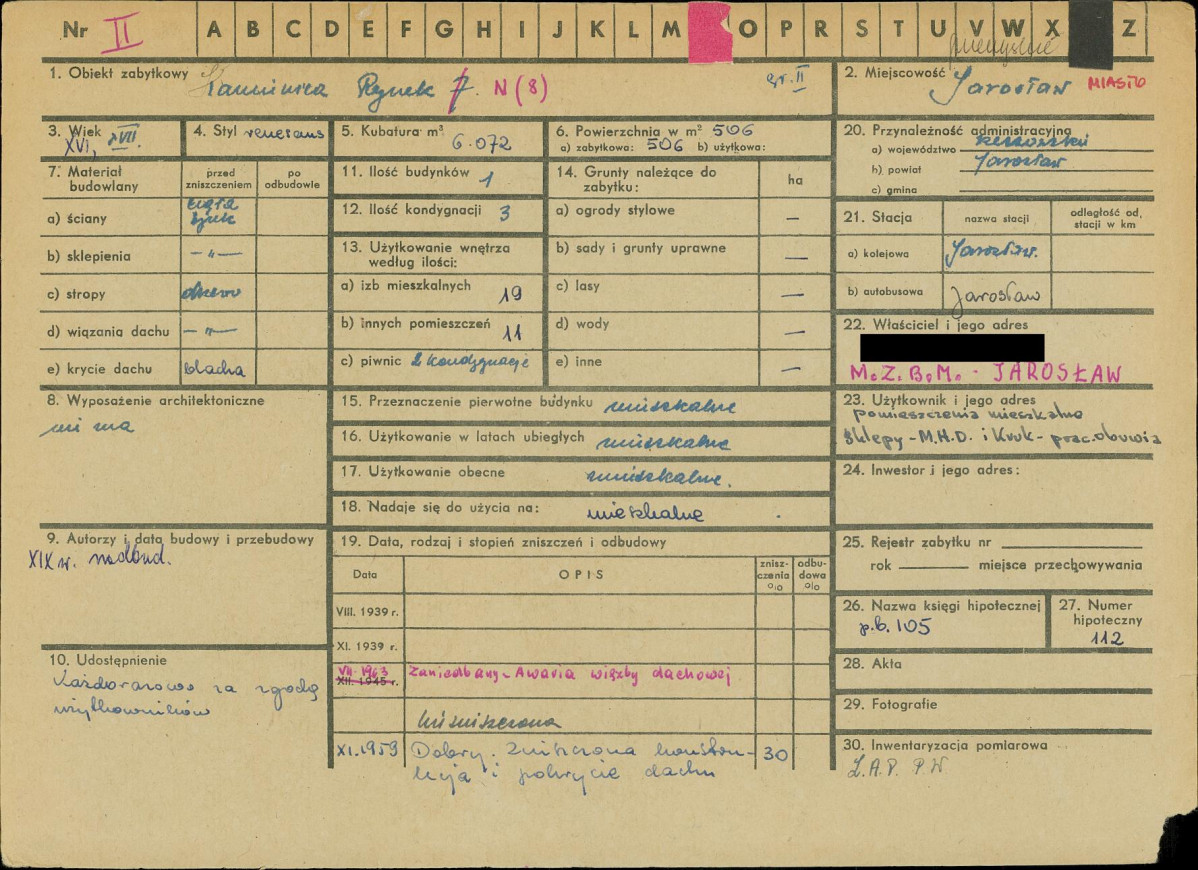 Nr II A B C D E F G H I J K L M O P R S T U V W X Z
1. Obiekt zabytkowy Kamienica Rynek 7. N (8) gr. II
2. Miejscowość Jarosław MIASTO
3. Wiek XVI, XVII.
4. Styl renesans
5. Kubatura m³ 6.072
6. Powierzchnia w m² 506
a) zabytkowa: 506 b) użytkowa:
7. Materiał budowlany
przed zniszczeniem
po odbudowie
a) ściany cegła
b) sklepienia —"—
c) stropy drzewo
d) wiązania dachu —"—
e) krycie dachu blacha
8. Wyposażenie architektoniczne
nie ma
9. Autorzy i data budowy i przebudowy
XIX w. nadbud.
10. Udostępnienie
Każdorazowo za zgodą
użytkowników
11. Ilość budynków 1
12. Ilość kondygnacji 3
13. Użytkowanie wnętrza
według ilości:
a) izb mieszkalnych 19
b) innych pomieszczeń 11
c) piwnic 2 kondygnacje
14. Grunty należące do
zabytku:
ha
a) ogrody stylowe —
b) sady i grunty uprawne —
c) lasy —
d) wody —
e) inne —
15. Przeznaczenie pierwotne budynku mieszkalne
16. Użytkowanie w latach ubiegłych mieszkalne
17. Użytkowanie obecne mieszkalne.
18. Nadaje się do użycia na: mieszkalne
19. Data, rodzaj i stopień zniszczeń i odbudowy
Data
OPIS
znisz-
czenia
o/o
odbu-
dowa
o/o
VIII. 1939 r.
XI. 1939 r.
VII-1963 Zaniedbany - Awaria więźby dachowej
XII. 1945 r.
XI.1959 Dobry. Zniszczona konstru-
kcja i pokrycie dachu 30
20. Przynależność administracyjna
a) województwo rzeszowskie
b) powiat Jarosław
c) gmina
21. Stacja
nazwa stacji
odległość od,
stacji w km
a) kolejowa Jarosław.
b) autobusowa Jarosław
22. Właściciel i jego adres
M.Z.B.M. - JAROSŁAW
23. Użytkownik i jego adres
pomieszczenia mieszkalne
sklepy - M.H.D. i Kruk - prac. obuwia
24. Inwestor i jego adres:
25. Rejestr zabytku nr
rok miejsce przechowywania
26. Nazwa księgi hipotecznej
p.b. 105
27. Numer
hipoteczny
112
28. Akta
29. Fotografie
30. Inwentaryzacja pomiarowa
Z.A.P. P.W